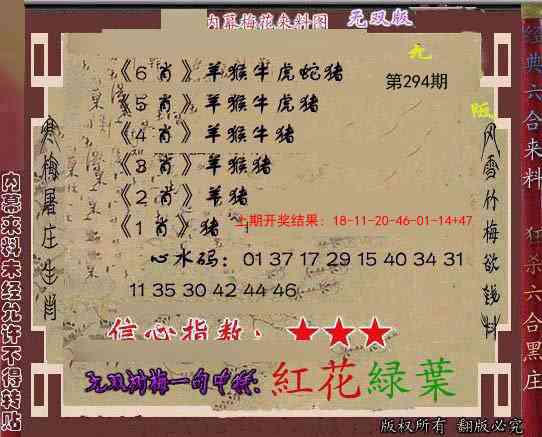 内幕梅花来料图 无双版
九
《6肖》羊猴牛虎蛇猪
第294期
《5肖》羊猴牛虎猪
版
《4肖》羊猴牛猪
《3肖》羊猴猪
《2肖》羊猪
上期开奖结果：18-11-20-46-01-14+47
《1肖》猪
心水码：01 37 17 29 15 40 34 31
11 35 30 42 44 46
信心指数：★★★
紅花綠葉
版权所有 翻版必究
寒梅屠庄生肖
风雪竹梅欲钱料
内幕来料未经允许不得转贴
经典六合来料 狂杀六合黑庄